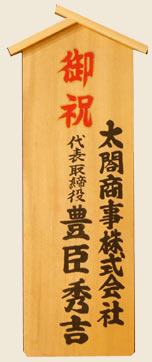 御祝
太閤商事株式会社
代表取締役 豊臣秀吉